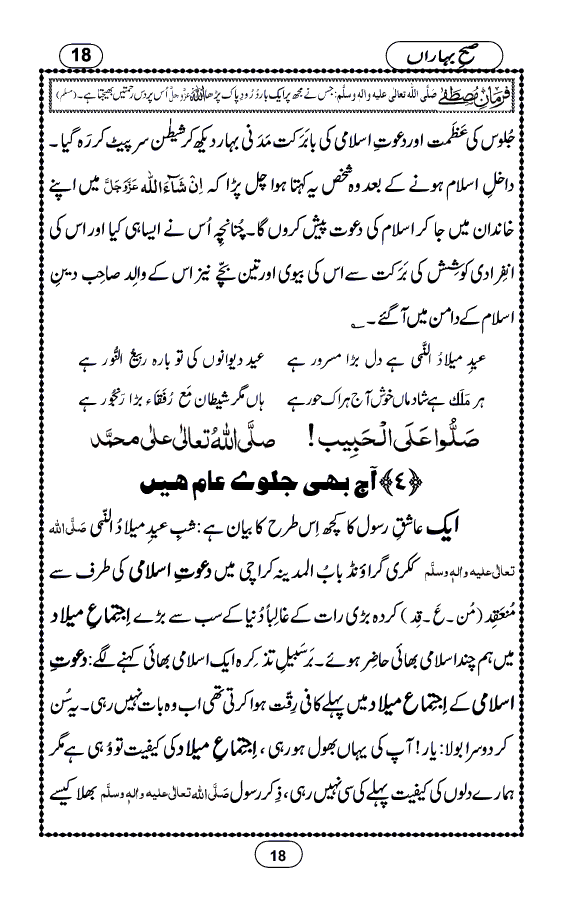 18
صبحِ بہاراں
فرمانِ مصطَفٰے صلَّی اللہ تعالٰی علیہ والہٖ وسلَّم: جس نے مجھ پر ایک بار دُرُودِ پاک پڑھا اللہ عَزَّوَجَلَّ اُس پر دس رحمتیں بھیجتا ہے۔ (مسلم)
جُلوس کی عَظَمت اور دعوتِ اسلامی کی بابَرَکت مَدَنی بہار دیکھ کر شیطٰن سر پیٹ کر رہ گیا۔
داخلِ اسلام ہونے کے بعد وہ شخص یہ کہتا ہوا چل پڑا کہ اِنْ شَآءَ اللہ عَزَّوَجَلَّ میں اپنے
خاندان میں جا کر اسلام کی دعوت پیش کروں گا۔ چُنانچِہ اُس نے ایسا ہی کیا اور اس کی
اِنفِرادی کوشِش کی بَرَکت سے اس کی بیوی اور تین بچّے نیز اس کے والِد صاحِب دینِ
اسلام کے دامن میں آگئے۔ ؎
عیدِ میلادُ النَّبی ہے دل بڑا مسرور ہے عید دیوانوں کی تو بارہ ربیعُ النُّور ہے
ہر مَلَک ہے شادماں خوش آج ہر اک حور ہے ہاں مگر شیطان مَع رُفَقاء بڑا رَنجُور ہے
صَلُّوا عَلَی الْحَبِیب! صلَّی اللہُ تعالٰی علٰی محمَّد
﴿٤﴾ آج بھی جلوے عام ھیں
ایک عاشقِ رسول کا کچھ اِس طرح کا بیان ہے: شبِ عیدِ میلادُ النَّبی صَلَّی اللہ
تعالٰی علیہ والہٖ وسلَّم ککری گراؤنڈ بابُ المدینہ کراچی میں دعوتِ اسلامی کی طرف سے
مُنعَقِد (مُن۔عَ۔قِد) کردہ بڑی رات کے غالِباً دُنیا کے سب سے بڑے اِجتِماعِ میلاد
میں ہم چند اسلامی بھائی حاضِر ہوئے۔ بَر سَبیلِ تذکِرہ ایک اسلامی بھائی کہنے لگے: دعوتِ
اسلامی کے اِجتِماعِ میلاد میں پہلے کافی رِقّت ہوا کرتی تھی اب وہ بات نہیں رہی۔ یہ سُن
کر دوسرا بولا: یار! آپ کی یہاں بھول ہو رہی، اِجتِماعِ میلاد کی کیفیت تو وُہی ہے مگر
ہمارے دلوں کی کیفیت پہلے کی سی نہیں رہی، ذِکرِ رسول صَلَّی اللہ تعالٰی علیہ والہٖ وسلَّم بھلا کیسے
18